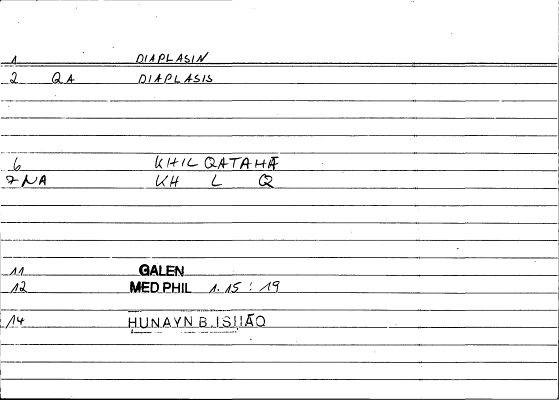 1 DIAPLASIN
2 QA DIAPLASIS
6 KHIL QATAHA
7 NA KH L Q
11 GALEN
12 MED.PHIL 1.15 : 19
14 HUNAYN B. ISḤĀQ